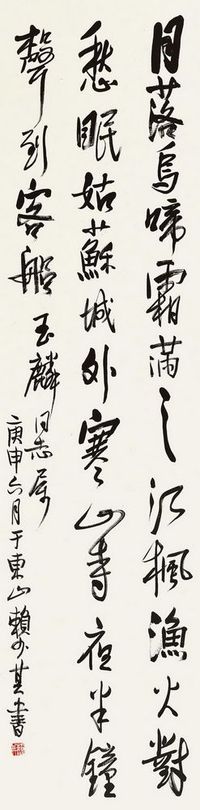 月落烏啼霜滿天江楓漁火對
愁眠姑蘇城外寒山寺夜半鐘
聲到客船 玉麟同志屬
庚申六月于東山賴少其書